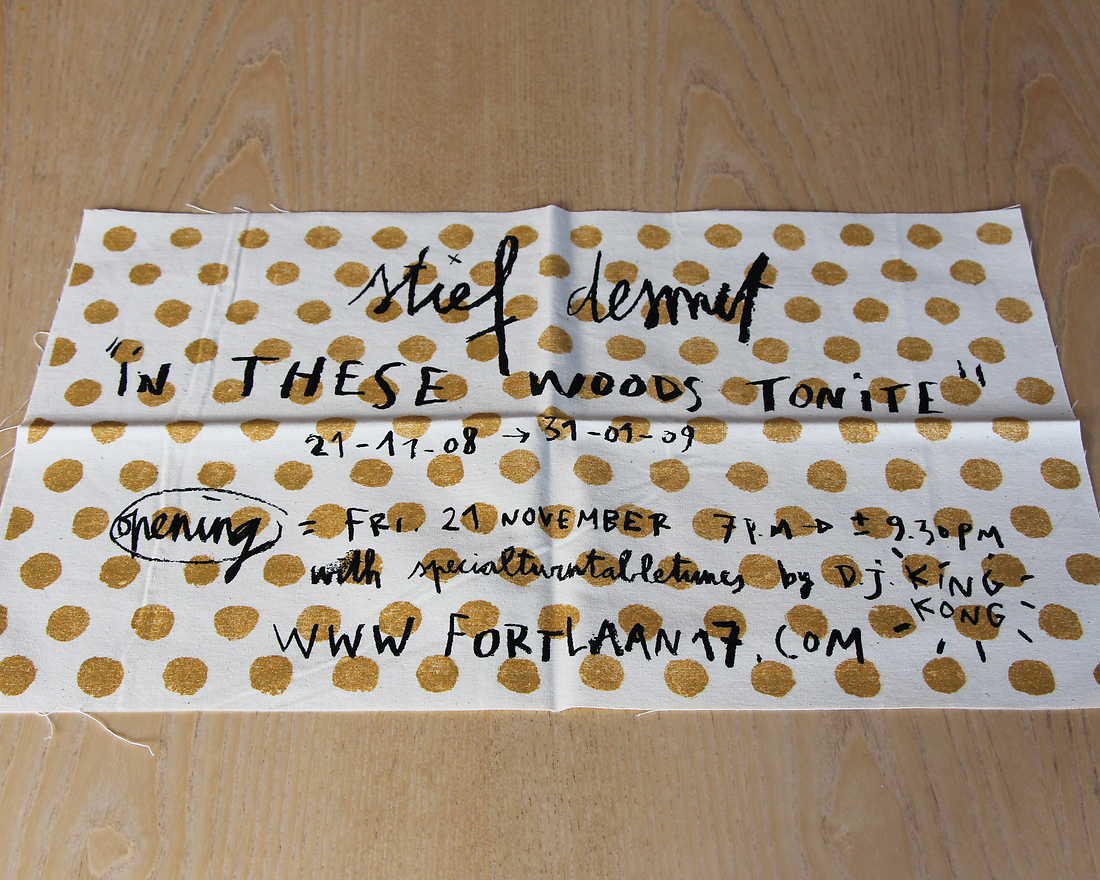 stief desmet
"iN THESE WOODS TONiTE"
21-11-08 → 31-01-09
opening = FRI. 21 NOVEMBER 7P.M → ± 9.30PM
with specialturntabletunes by D.J. KiNG
KONG
WWW FORTLAAN17.COM